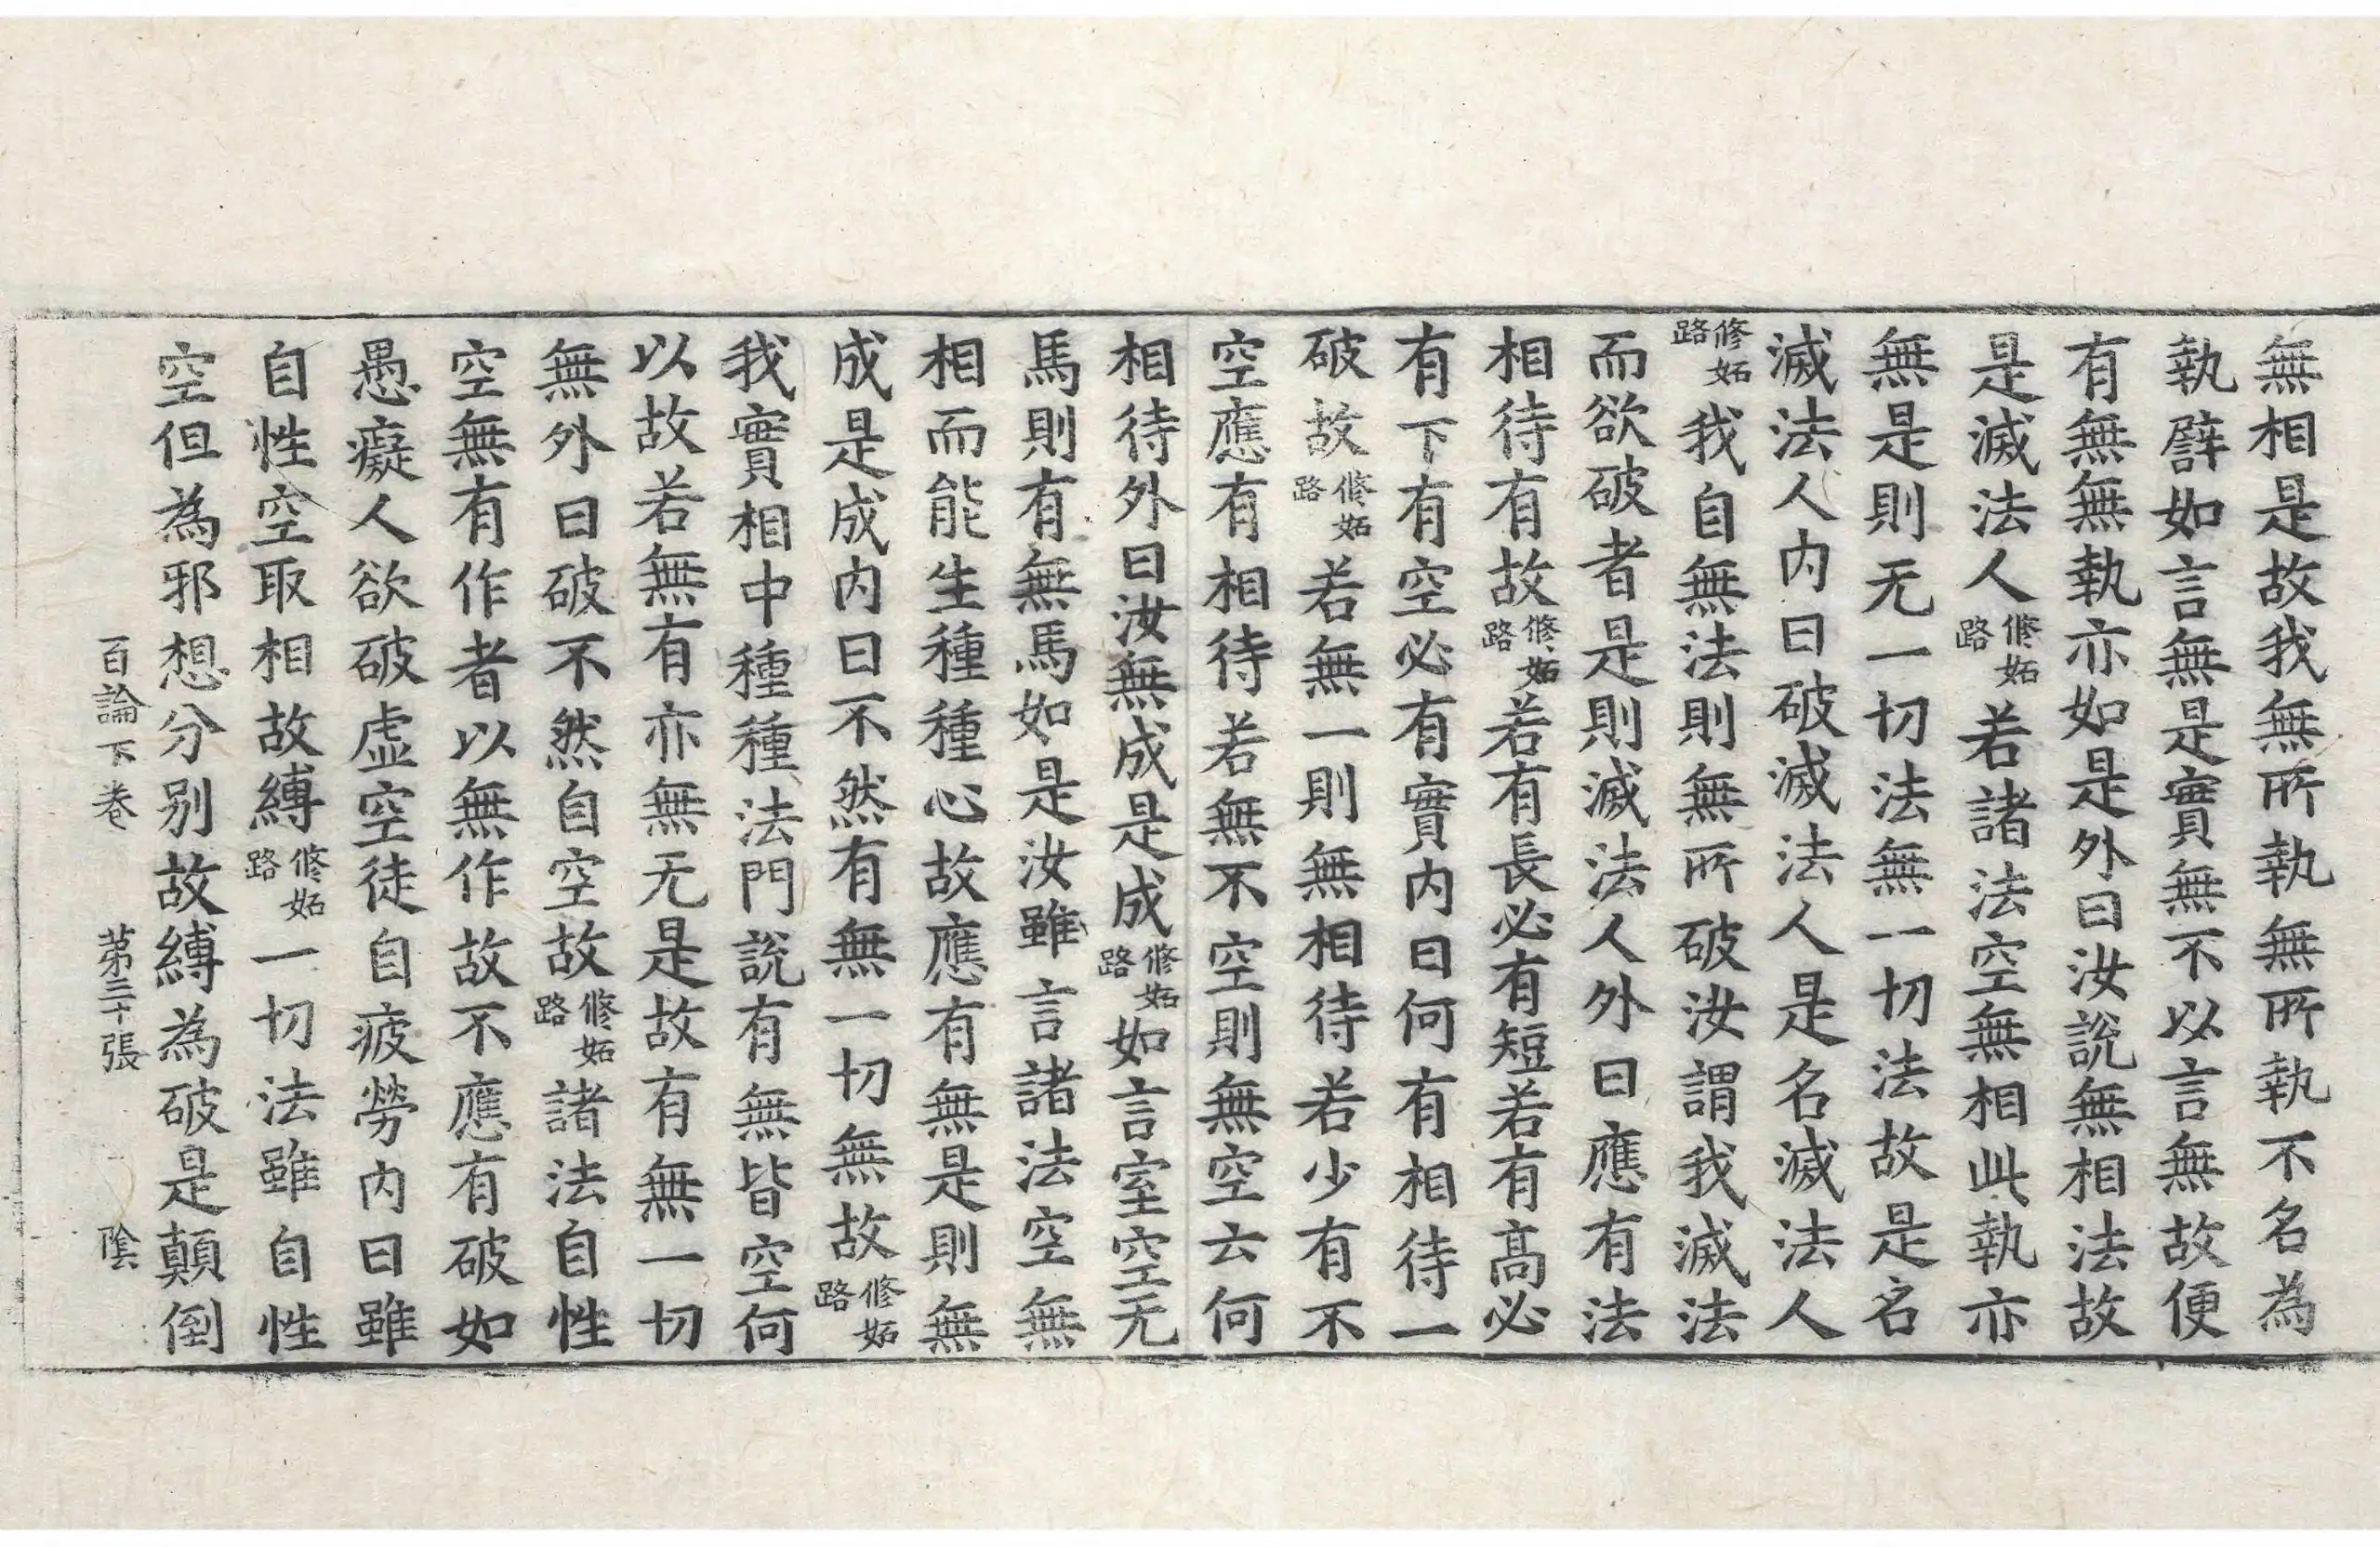 無相是故我無所執無所執不名為
執譬如言無是實無不以言無故便
有無無執亦如是外曰汝說無相法故
是滅法人修妬路若諸法空無相此執亦
無是則无一切法無一切法故是名
滅法人内曰破滅法人是名滅法人
修妬路我自無法則無所破汝謂我滅法
而欲破者是則滅法人外曰應有法
相待有故修妬路若有長必有短若有髙必
有下有空必有實内曰何有相待一
破故修妬路若無一則無相待若少有不
空應有相待若無不空則無空云何
相待外曰汝無成是成修妬路如言室空无
馬則有無馬如是汝雖言諸法空無
相而能生種種心故應有無是則無
成是成内曰不然有無一切無故修妬路
我實相中種種法門說有無皆空何
以故若無有亦無无是故有無一切
無外曰破不然自空故修妬路諸法自性
空無有作者以無作故不應有破如
愚癡人欲破虛空徒自疲勞内曰雖
自性空取相故縛修妬路一切法雖自性
空但為邪想分別故縛為破是顛倒
百論下卷　第三十張　陰